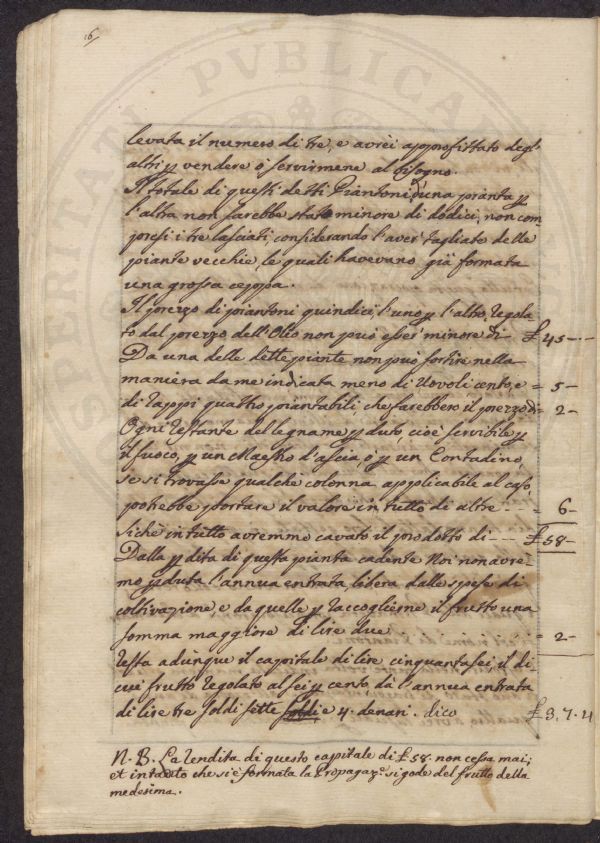 16/
levata il numero di tre, e avrei approfittato degl'
altri p vendere o servirmene al bisogno.
Il totale di questi detti Piantoni d'una pianta p
l'altra non sarebbe stato minore di dodici, non com-
presi i tre lasciati, considerando l'aver' tagliato delle
piante vecchie, le quali havevano già formata
una grossa ceppa.
Il prezzo di piantoni quindici, l'uno p l'altro, regola
to dal prezzo dell'Olio non può esser' minore di £ 45 - -
Da una delle dette piante non può sortire nella
maniera da me indicata meno di Uovoli cento, e = 5 -
di rappi quattro piantabili che sarebbero il prezzo di = 2 -
Ogni restante del legname p duto, cioè servibile p
il fuoco, p un Maestro d'ascia, ò p un Contadino,
se si trovasse qualche colonna applicabile al caso,
potrebbe portare il valore in tutto di altre - - - = 6 -
Sichè in tutto avremmo cavato il prodotto di - - - £ 58 -
Dalla p dita di questa pianta cadente Noi non avre-
mo p duta l'annua entrata, libera dalle spese di
coltivazione, e da quelle p raccoglierne il frutto una
somma maggiore di lire due = 2 -
Resta adunque il capitale di lire cinquantasei il di
cui frutto regolato al sei p cento, dà l'annua entrata
di lire tre soldi sette soldi e 4. denari. dico £ 3. 7. 4
N. B. La rendita di questo capitale di £ 58. non cessa mai;
et intanto che si è formata la Propagaz.e si gode del frutto della
medesima.